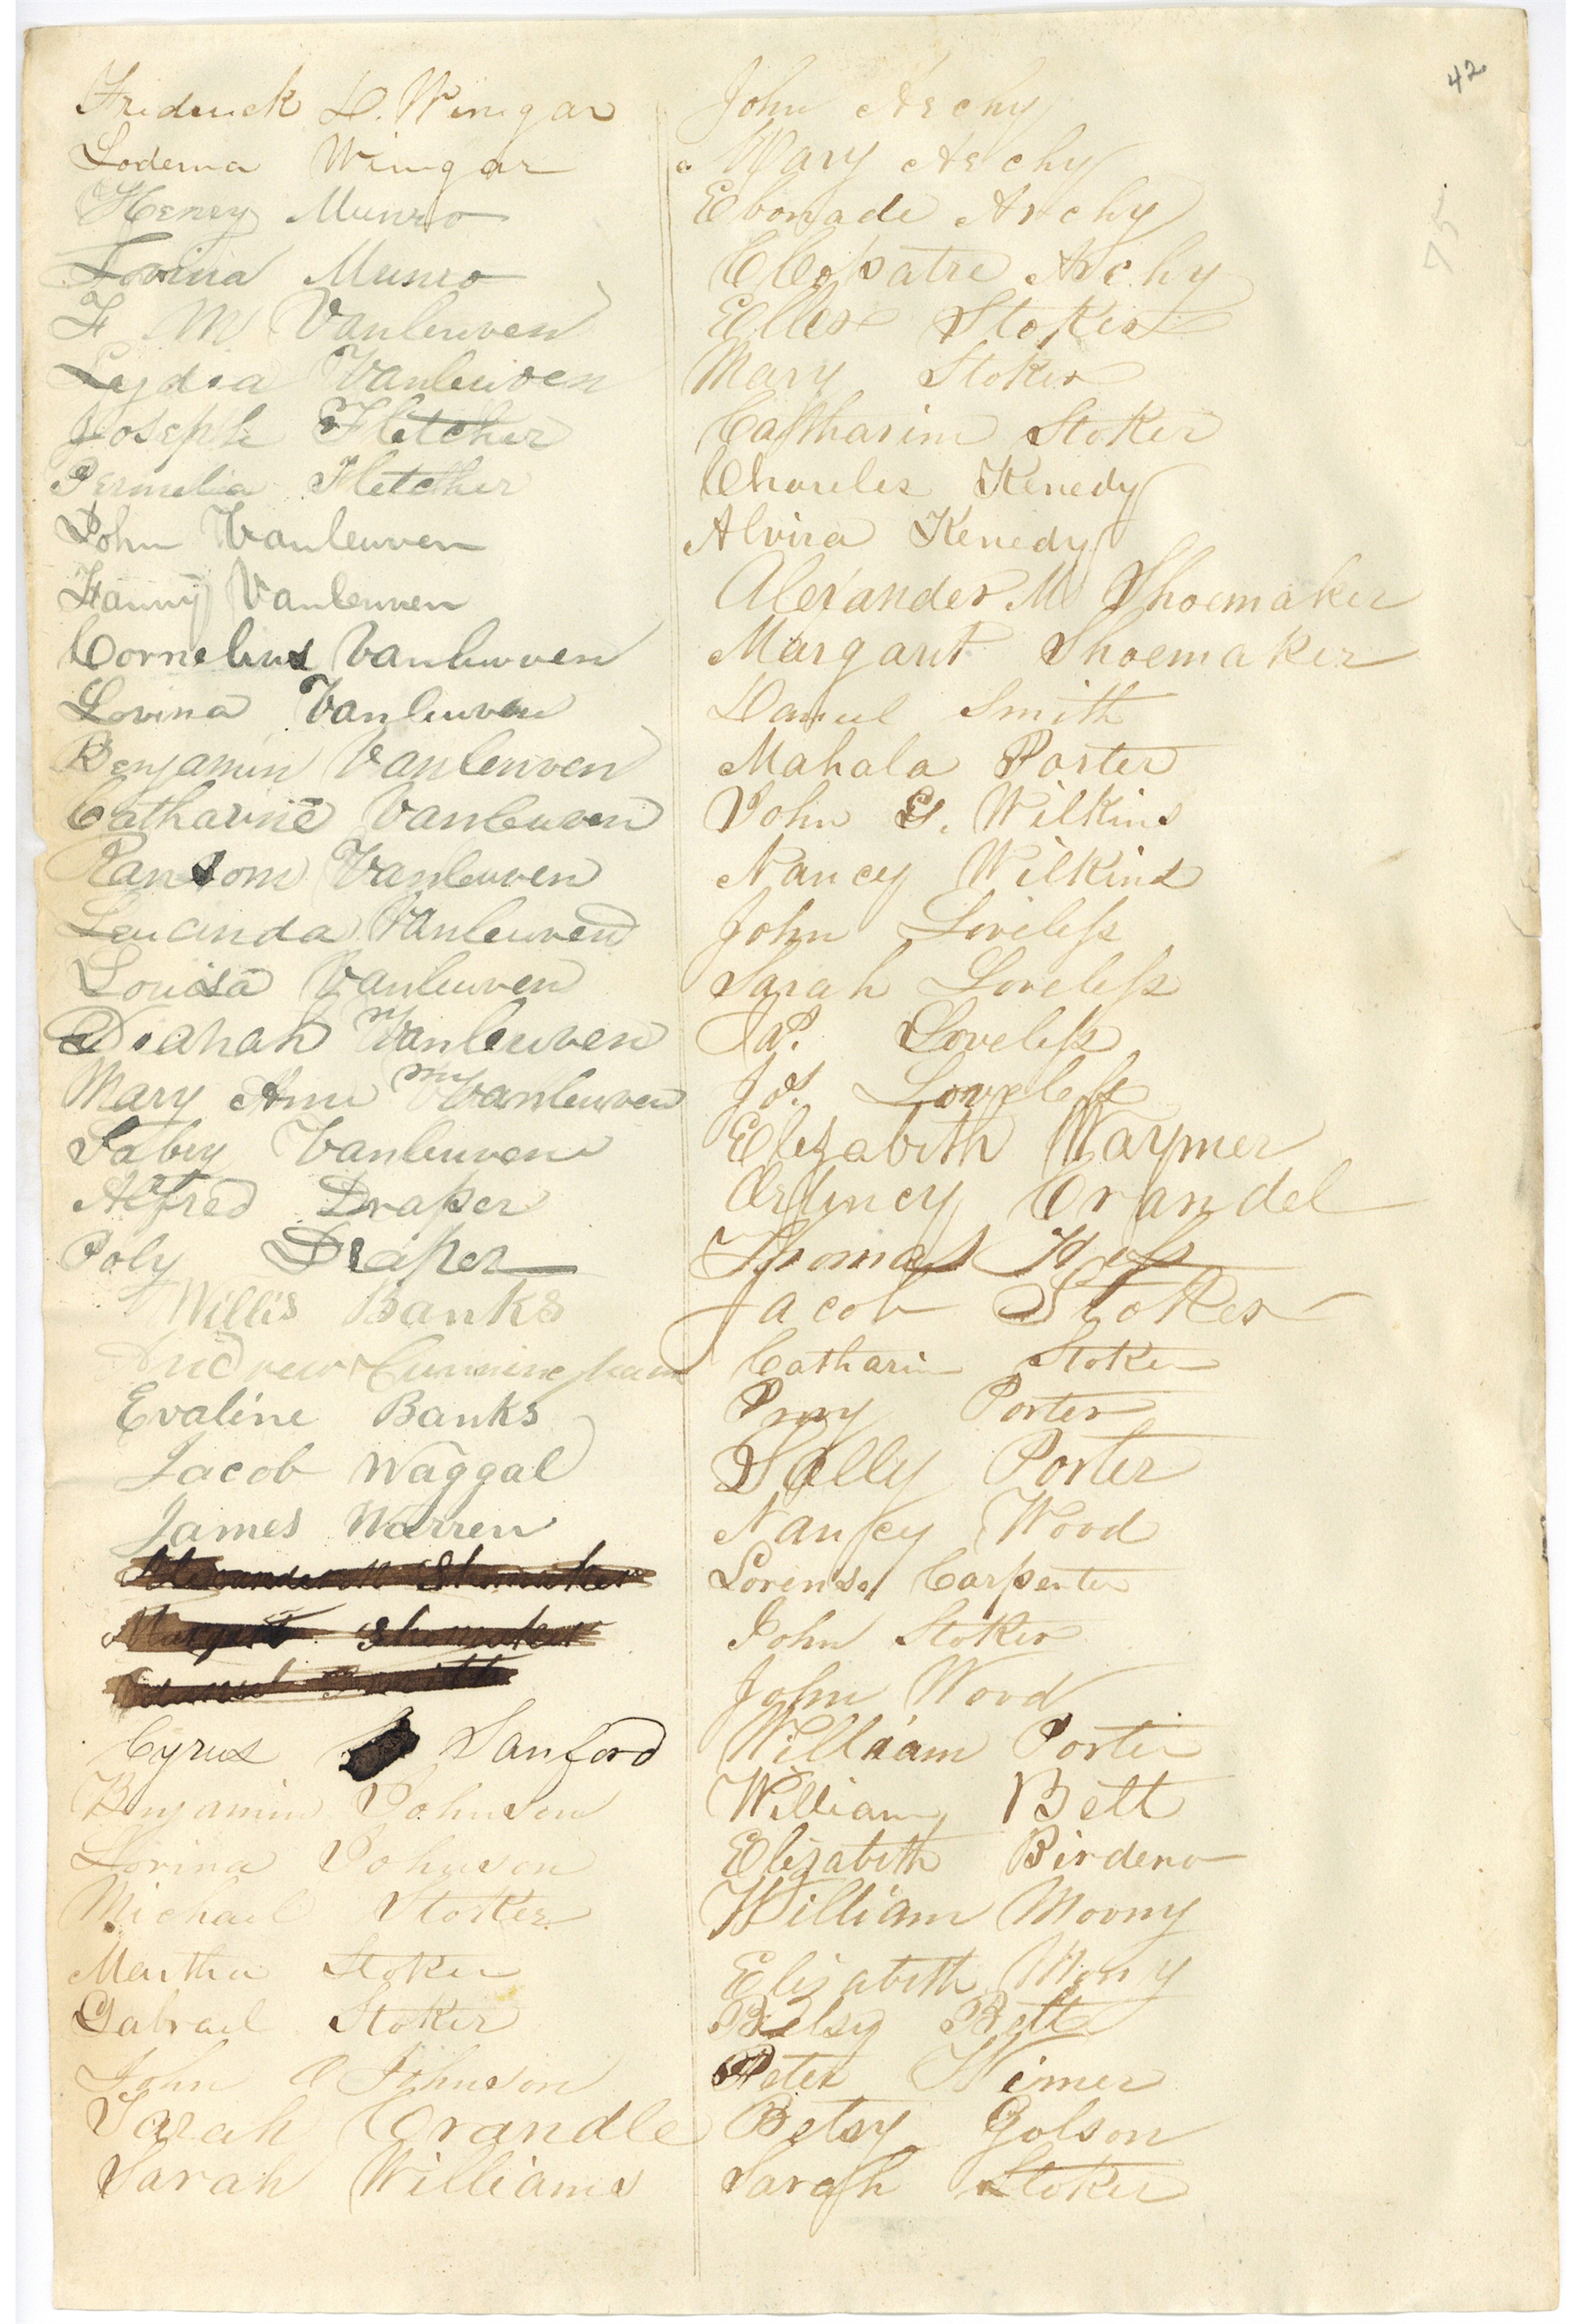 42
75
Friderick D. Winegar
Lodema Winegar
Henry Munro
Lovina Munro
F M Vanleuven
Lydia Vanleuven
Joseph Fletcher
Permelia Fletcher
John Vanleuven
Fanny Vanleuven
Cornelius Vanleuven
Lovina Vanleuven
Benjamin Vanleuven
Catharine Vanleuven
Ransom Vanleuven
Lucinda Vanleuven
Louisa Vanleuven
Dianah Vanleuven
Mary Ann Vanleuven
Tabey Vanleuven
Alfred Draper
Poly Draper
Willis Banks
Andrew Cunningham
Evaline Banks
Jacob Waggal
James Warren
Alexander M Shomaker
Margret Shomaker
Daniel Smith
Cyrus Sanford
Benjamin Johnson
Lovina Johnson
Michael Stoker
Martha Stoker
Gabrael Stoker
John Johnson
Sarah Crandle
Sarah Williams
John Archy
Mary Archy
Ebonade Archy
Cleopatre Archy
Eller Stoker
Mary Stoker
Catharine Stoker
Charles Kenedy
Alvira Kenedy
Alexander M Shoemaker
Margaret Shoemaker
Daniel Smith
Mahala Porter
John G. Wilkins
Nancy Wilkins
John Loveless
Sarah Loveless
Ja? Loveless
Jos. Loveless
Elizabeth Waymer
Orfincy Crandel
Thomas Hess
Jacob Stoker
Catharin Stoker
Porter
Sally Porter
Nancy Wood
Lorenso Carpenter
John Stoker
John Wood
William Porter
William Bett
Elizabeth Birdeno
William Moony
Elizabeth Mony
Betsy Bett
Peter Wimer
Betsy Golson
Sarah Stoker